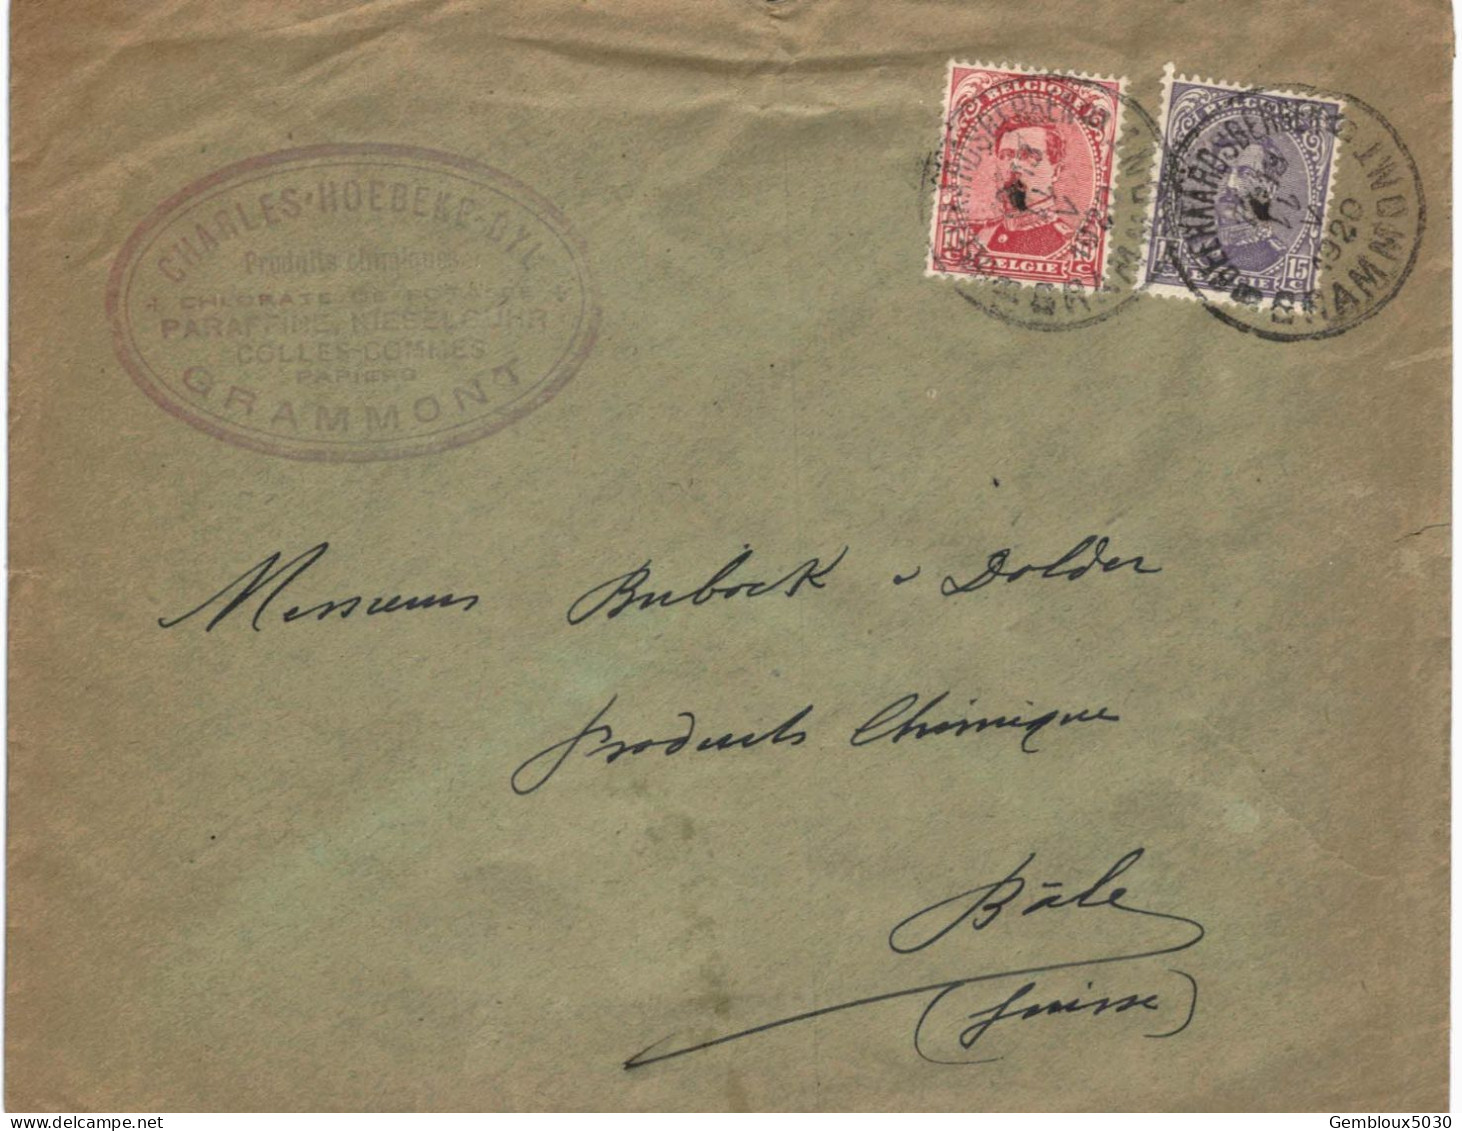 CHARLES-HOEBEKE-BYL
Produits chimiques
CHLORATE DE POTASSE
PARAFFINE, KIESELGUHR
COLLES-GOMMES
PAPIERS
GRAMMONT
BELGIQUE
BELGIE
10 C
GEERAARDSBERGEN
GRAMMONT
1920
BELGIQUE
BELGIE
15 C
GEERAARDSBERGEN
12-13
1920
GRAMMONT
Messieurs Bubock & Dolder
Produits Chimique
Bâle
(Suisse)
Gembloux5030